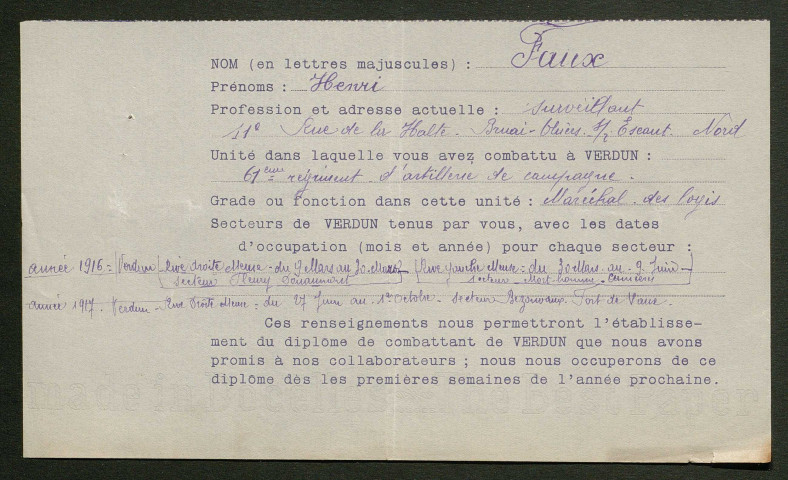 NOM (en lettres majuscules) : Faux
Prénoms : Henri
Profession et adresse actuelle : surveillant
11e Rue de la Halte. Bruai-thiers s/ Escaut. Nord
Unité dans laquelle vous avez combattu à VERDUN :
61eme régiment d'artillerie de campagne.
Grade ou fonction dans cette unité : Maréchal des logis
Secteurs de VERDUN tenus par vous, avec les dates
d'occupation (mois et année) pour chaque secteur :
année 1916 = Verdun rive droite Meuse - du 9 Mars au 30 Mars - Rive gauche Meuse = du 30 Mars au 9 Juin -
secteur Fleury Douaumont secteur Mort-homme - Cumières
année 1917. Verdun - Rive Droite Meuse = du 27 Juin au 1er Octobre - secteur Bezonvaux Fort de Vaux.
Ces renseignements nous permettront l'établisse-
ment du diplôme de combattant de VERDUN que nous avons
promis à nos collaborateurs ; nous nous occuperons de ce
diplôme dès les premières semaines de l'année prochaine.